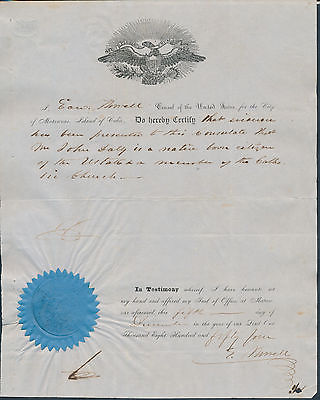 I Edw. Worrell Consul of the United States for the City
of Matanzas, Island of Cuba, Do hereby Certify that evidence
has been presented to this consulate that
Mr John Daly is a native born citizen
of the UStates & a member of the Catho
lic Church
In Testimony whereof, I have hereunto set
my hand and affixed my Seal of Office at Matan-
zas aforesaid, this fifth day of
December in the year of our Lord One
Thousand Eight Hundred and fifty four
E. Worrell